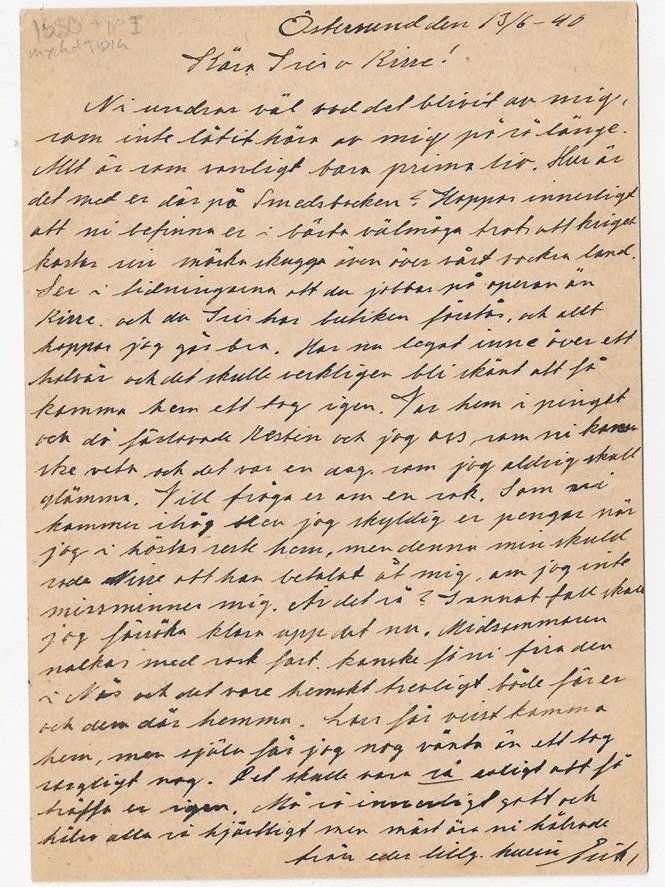 Östersund den 13/6-40
Kära Sris o Kirre!
Ni undrar väl vad det blivit av mig,
som inte låtit höra av mig på så länge.
Allt är som vanligt bara prima liv. Hur är
det med er där på Smedsbacken? Hoppas innerligt
att ni befinna er i bästa välmåga trots att kriget
kastar sin mörka skugga även över vårt vackra land.
Ser i tidningarna att du jobbar på operan än
Kirre. och du Sris har butiken förstås, och allt
hoppas jag går bra. Har nu legat inne över ett
halvår och det skulle verkligen bli skönt att få
komma hem ett tag igen. Var hem i pingst
och då förlovade Kerstin och jag oss, som ni kan
ske veta och det var en dag som jag aldrig skall
glömma. Vill fråga er om en sak. Som ni
kommer ihåg blev jag skyldig er pengar när
jag i höstas reste hem, men denna min skuld
sade Nisse att han betalat åt mig, om jag inte
missminner mig. Är det så? I annat fall skall
jag försöka klara upp det nu. Midsommaren
nalkas med rask fart, kanske få ni fira den
i Näs och det vore hemskt trevligt både för er
och dem där hemma. Lars får visst komma
hem, men själv får jag nog vänta än ett tag
sorgligt nog. Det skulle vara så roligt att få
träffa er igen. Må så innerligt gott och
hälsa alla så hjärtligt men mäst äro ni hälsade
från eder lillg.